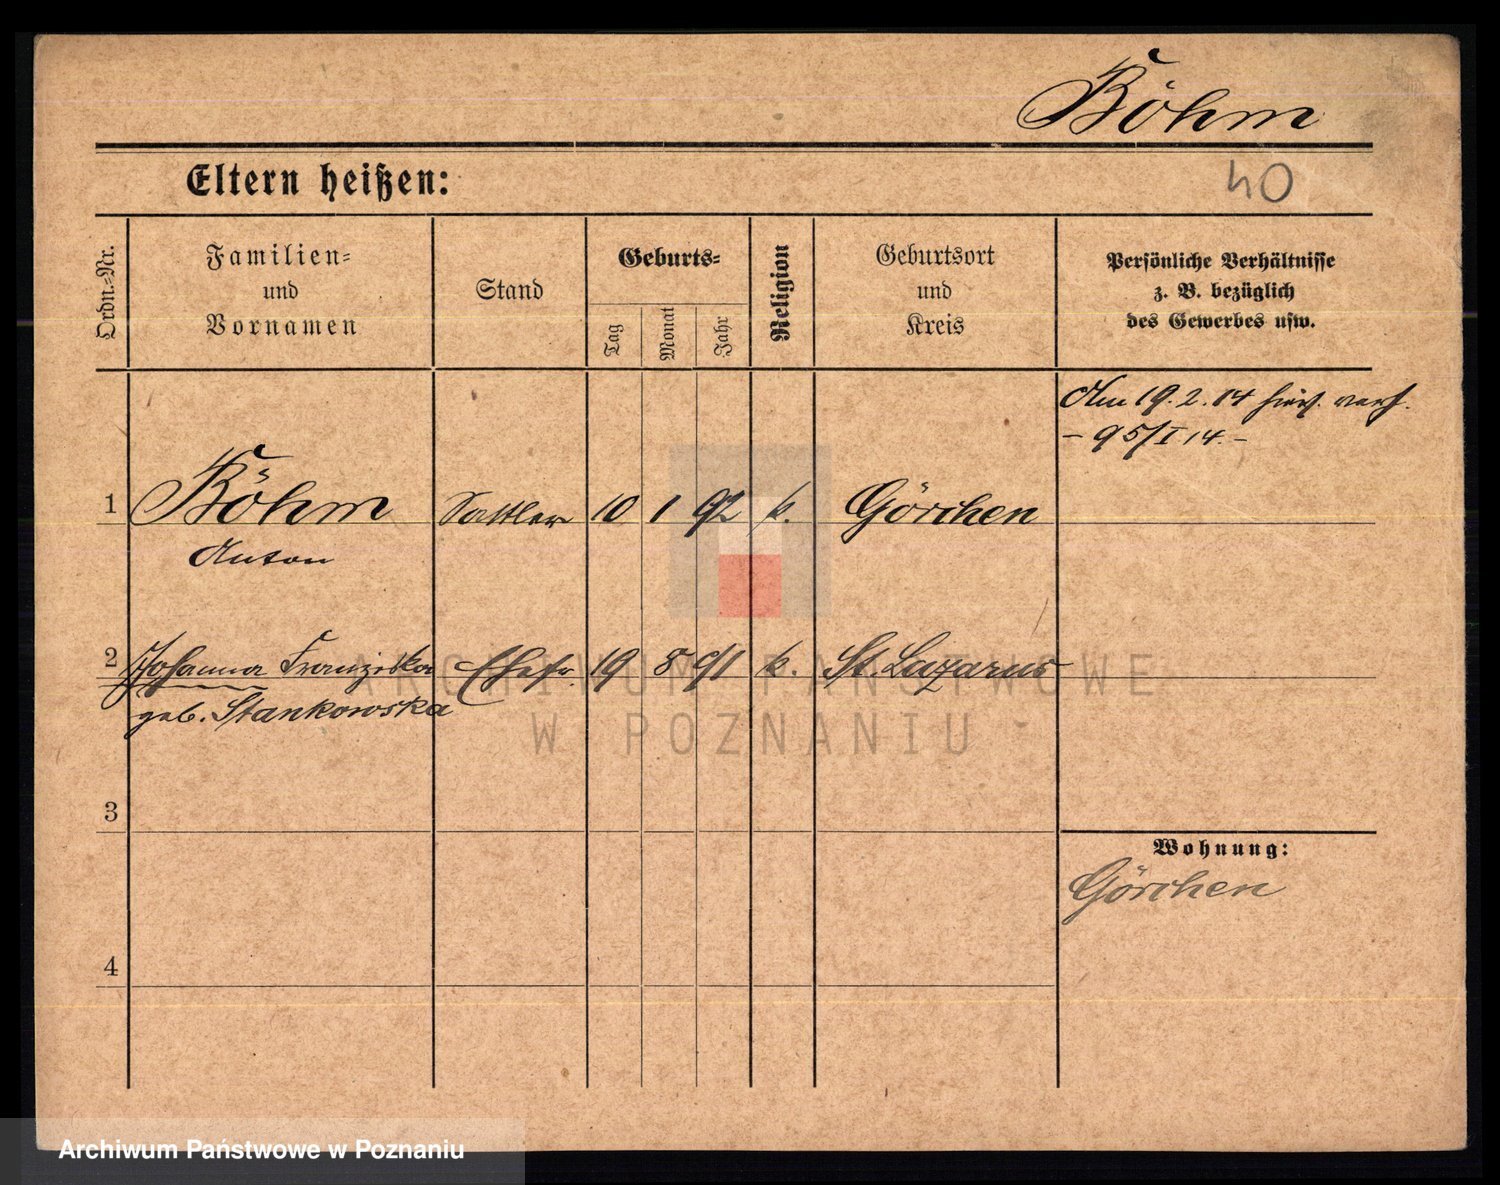 Böhm
Eltern heißen:
40
Ordn.-Nr.
Familien-
und
Vornamen
Stand
Geburts-
Tag
Monat
Jahr
Religion
Geburtsort
und
Kreis
Persönliche Verhältnisse
z. B. bezüglich
des Gewerbes usw.
Am 19.2.14 hier. verh.
- 95/I 14. -
1 Böhm Sattler 10 1 92 k. Görchen
Anton
2 Johanna Franziska Ehefr. 19 8 91 k. St. Lazarus
geb. Stankowska
3
Wohnung:
Görchen
4
ARCHIWUM PAŃSTWOWE
W POZNANIU
Archiwum Państwowe w Poznaniu